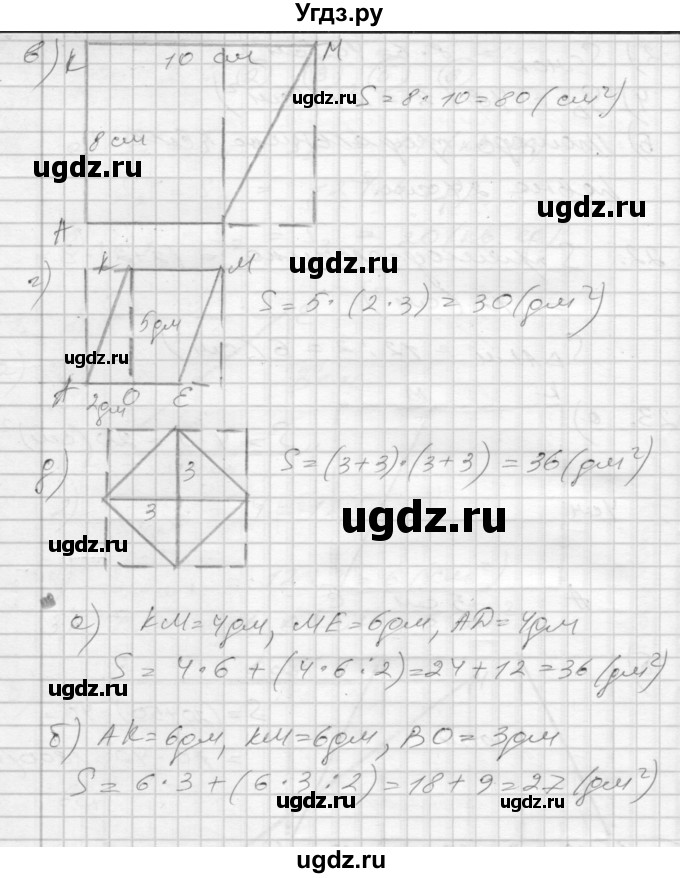 Угдз.ру
в) K 10 см M
ugdz.ru
S = 8 · 10 = 80 (см²)
8 см
ugdz.ru
ugdz.ru
A
ugdz.ru
г) K M
S = 5 · (2 · 3) = 30 (дм²)
5 дм
ugdz.ru
A 2дм O E
д) 3
S = (3+3) · (3+3) = 36 (дм²)
3
ugdz.ru
ugdz.ru
а) KM = 4 дм, ME = 6 дм, AD = 4 дм
S = 4 · 6 + (4 · 6 : 2) = 24 + 12 = 36 (дм²)
ugdz.ru
б) AK = 6 дм, KM = 6 дм, BO = 3 дм
S = 6 · 3 + (6 · 3 : 2) = 18 + 9 = 27 (дм²)
ugdz.ru
ugdz.ru
ugdz.ru